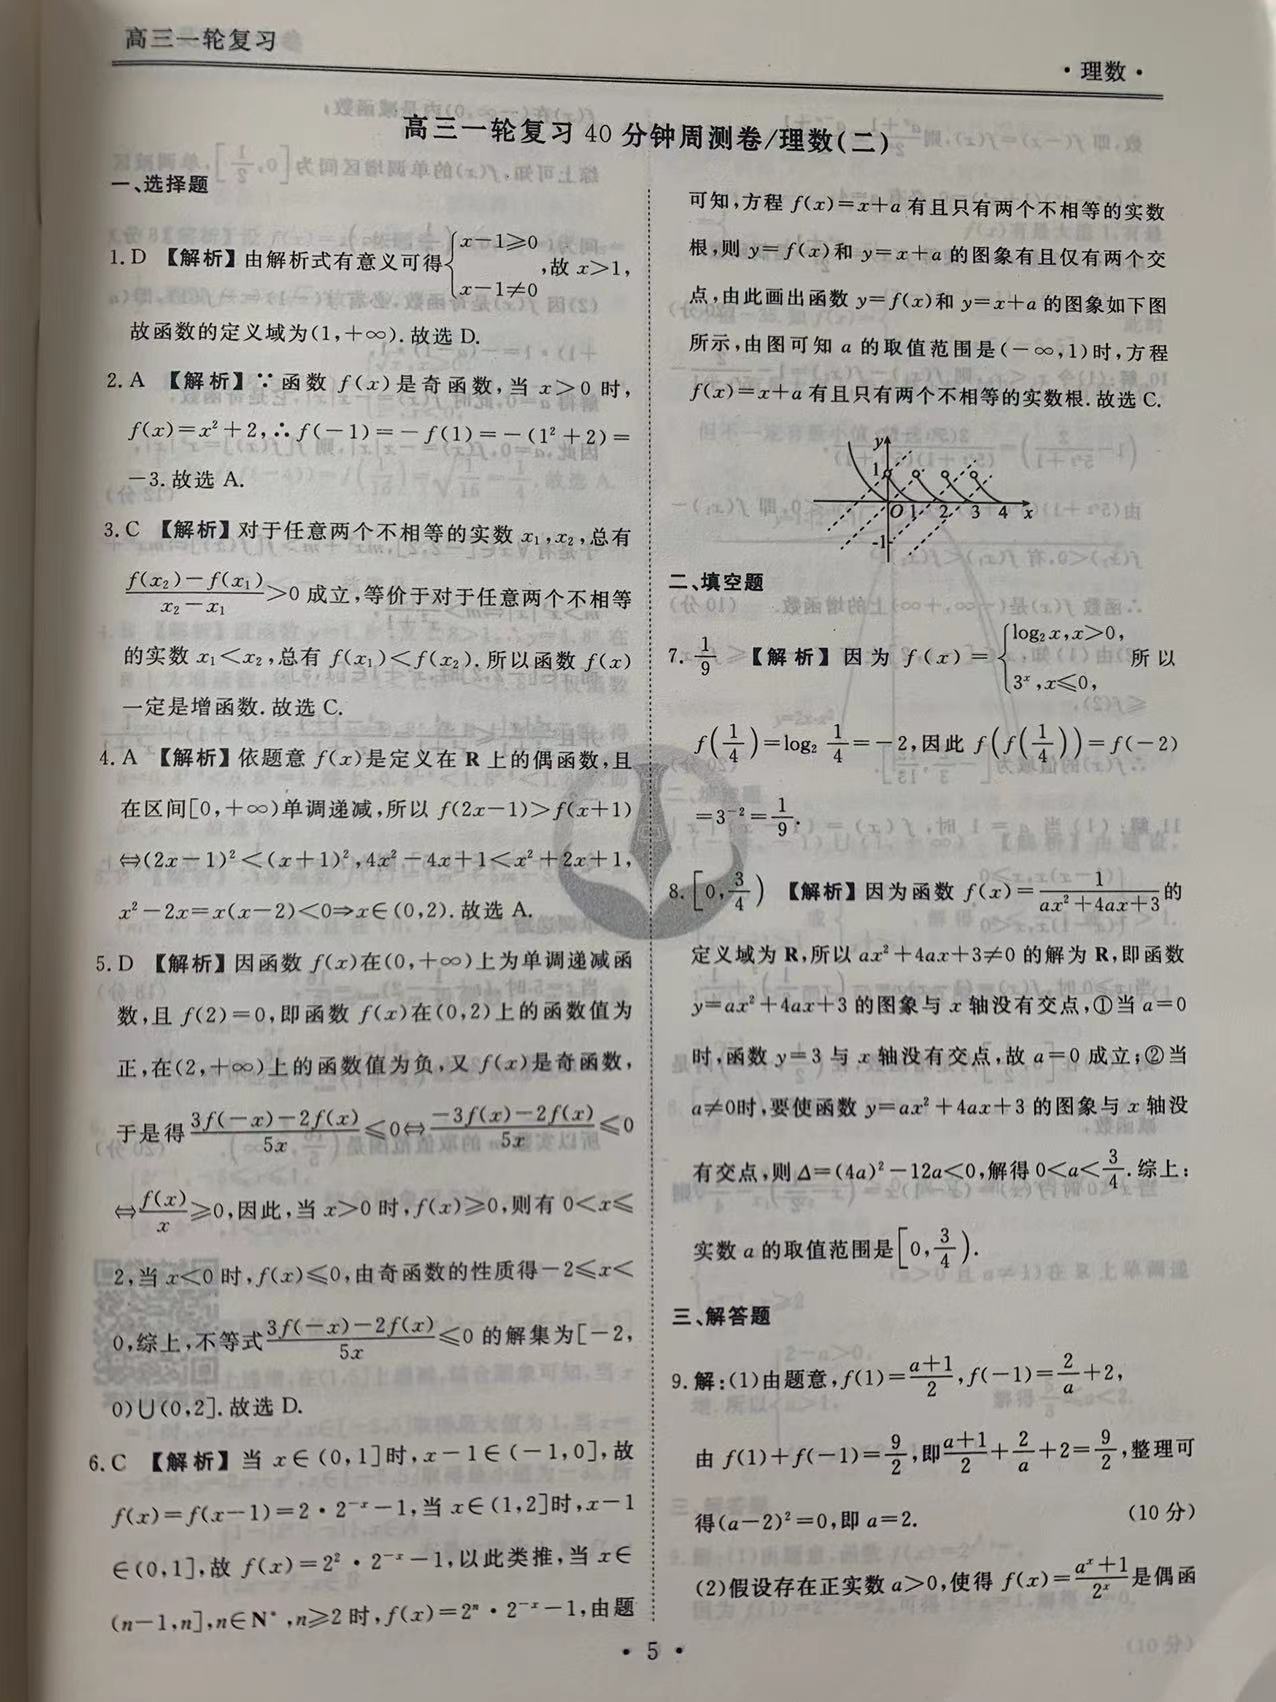 高三一轮复习
·理数·
高三一轮复习40分钟周测卷/理数(二)
一、选择题
1.D 【解析】由解析式有意义可得{x-1≥0, x-1≠0,故x>1,
故函数的定义域为(1,+∞).故选D.
2.A 【解析】∵函数f(x)是奇函数,当x>0时,
f(x)=x²+2,∴f(-1)=-f(1)=-(1²+2)=
-3.故选A.
3.C 【解析】对于任意两个不相等的实数x₁,x₂,总有
(f(x₂)-f(x₁))/(x₂-x₁)>0成立,等价于对于任意两个不相等
的实数x₁<x₂,总有f(x₁)<f(x₂).所以函数f(x)
一定是增函数.故选C.
4.A 【解析】依题意f(x)是定义在R上的偶函数,且
在区间[0,+∞)单调递减,所以f(2x-1)>f(x+1)
⇔(2x-1)²<(x+1)²,4x²-4x+1<x²+2x+1,
x²-2x=x(x-2)<0⇒x∈(0,2).故选A.
5.D 【解析】因函数f(x)在(0,+∞)上为单调递减函
数,且f(2)=0,即函数f(x)在(0,2)上的函数值为
正,在(2,+∞)上的函数值为负,又f(x)是奇函数,
于是得(3f(-x)-2f(x))/5x≤0⇔(-3f(x)-2f(x))/5x≤0
⇔f(x)/x≥0,因此,当x>0时,f(x)≥0,则有0<x≤
2,当x<0时,f(x)≤0,由奇函数的性质得-2≤x<
0,综上,不等式(3f(-x)-2f(x))/5x≤0的解集为[-2,
0)∪(0,2].故选D.
6.C 【解析】当x∈(0,1]时,x-1∈(-1,0],故
f(x)=f(x-1)=2·2⁻ˣ-1,当x∈(1,2]时,x-1
∈(0,1],故f(x)=2²·2⁻ˣ-1,以此类推,当x∈
(n-1,n],n∈N*,n≥2时,f(x)=2ⁿ·2⁻ˣ-1,由题
可知,方程f(x)=x+a有且只有两个不相等的实数
根,则y=f(x)和y=x+a的图象有且仅有两个交
点,由此画出函数y=f(x)和y=x+a的图象如下图
所示,由图可知a的取值范围是(-∞,1)时,方程
f(x)=x+a有且只有两个不相等的实数根.故选C.
y
1
O 1 2 3 4 x
-1
二、填空题
7. 1/9 【解析】因为f(x)={log₂x,x>0, 3ˣ,x≤0,所以
f(1/4)=log₂ 1/4=-2,因此f(f(1/4))=f(-2)
=3⁻²=1/9.
8.[0,3/4) 【解析】因为函数f(x)=1/(ax²+4ax+3)的
定义域为R,所以ax²+4ax+3≠0的解为R,即函数
y=ax²+4ax+3的图象与x轴没有交点,①当a=0
时,函数y=3与x轴没有交点,故a=0成立;②当
a≠0时,要使函数y=ax²+4ax+3的图象与x轴没
有交点,则Δ=(4a)²-12a<0,解得0<a<3/4.综上:
实数a的取值范围是[0,3/4).
三、解答题
9.解:(1)由题意,f(1)=(a+1)/2,f(-1)=2/a+2,
由f(1)+f(-1)=9/2,即(a+1)/2+2/a+2=9/2,整理可
得(a-2)²=0,即a=2. (10分)
(2)假设存在正实数a>0,使得f(x)=(aˣ+1)/2ˣ是偶函
·5·